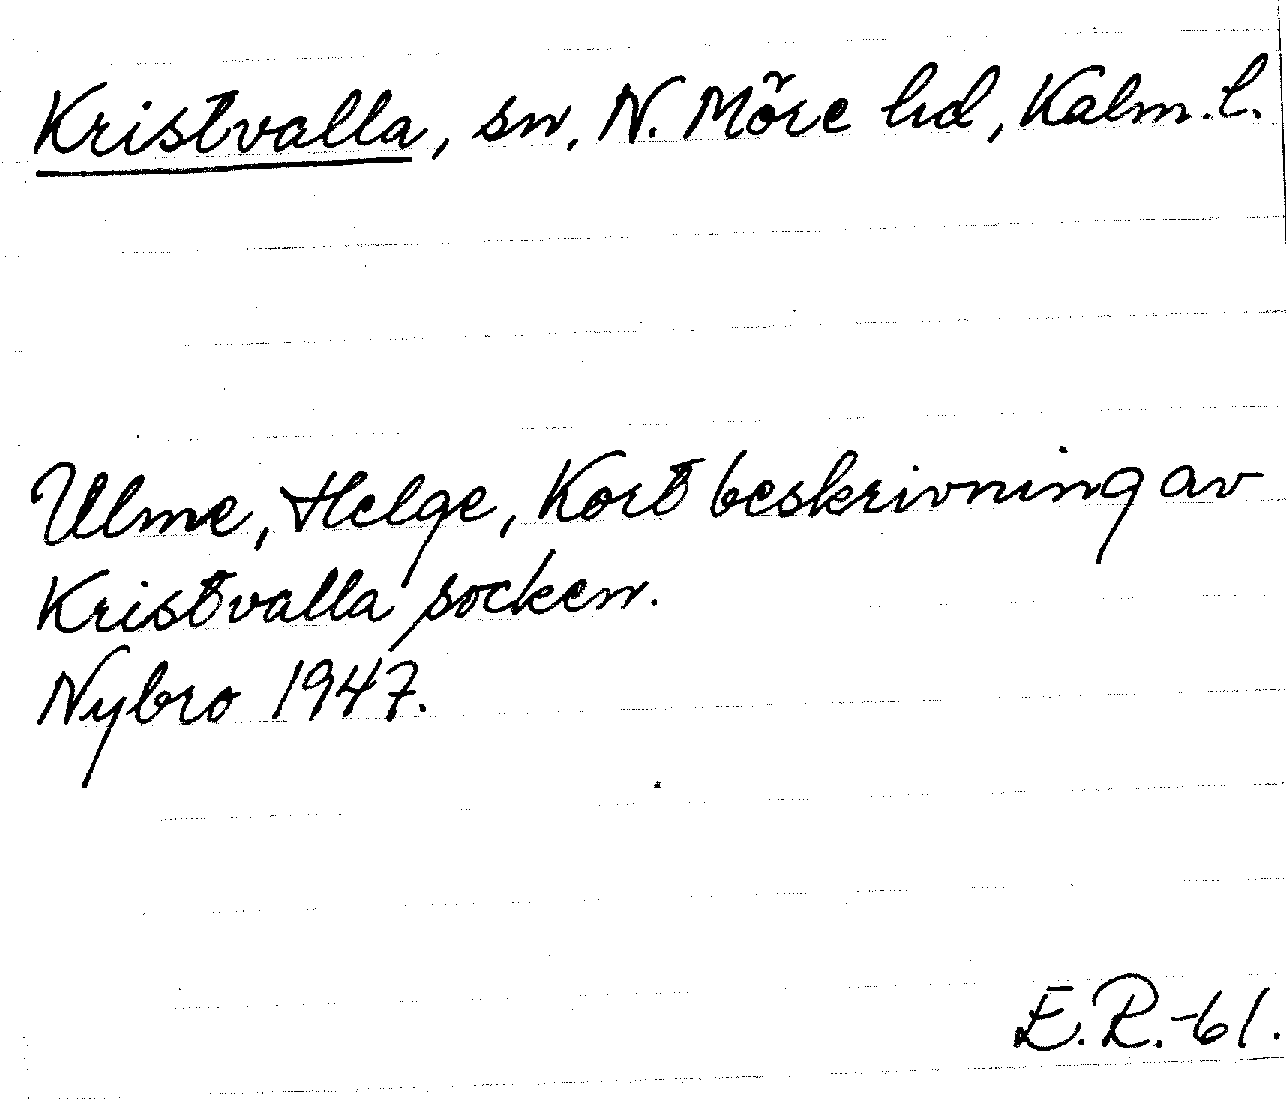 Kristvalla, sn, N. Möre hd, Kalm. l.
Ulme, Helge, Kort beskrivning av
Kristvalla socken.
Nybro 1947.
E.R.-61.